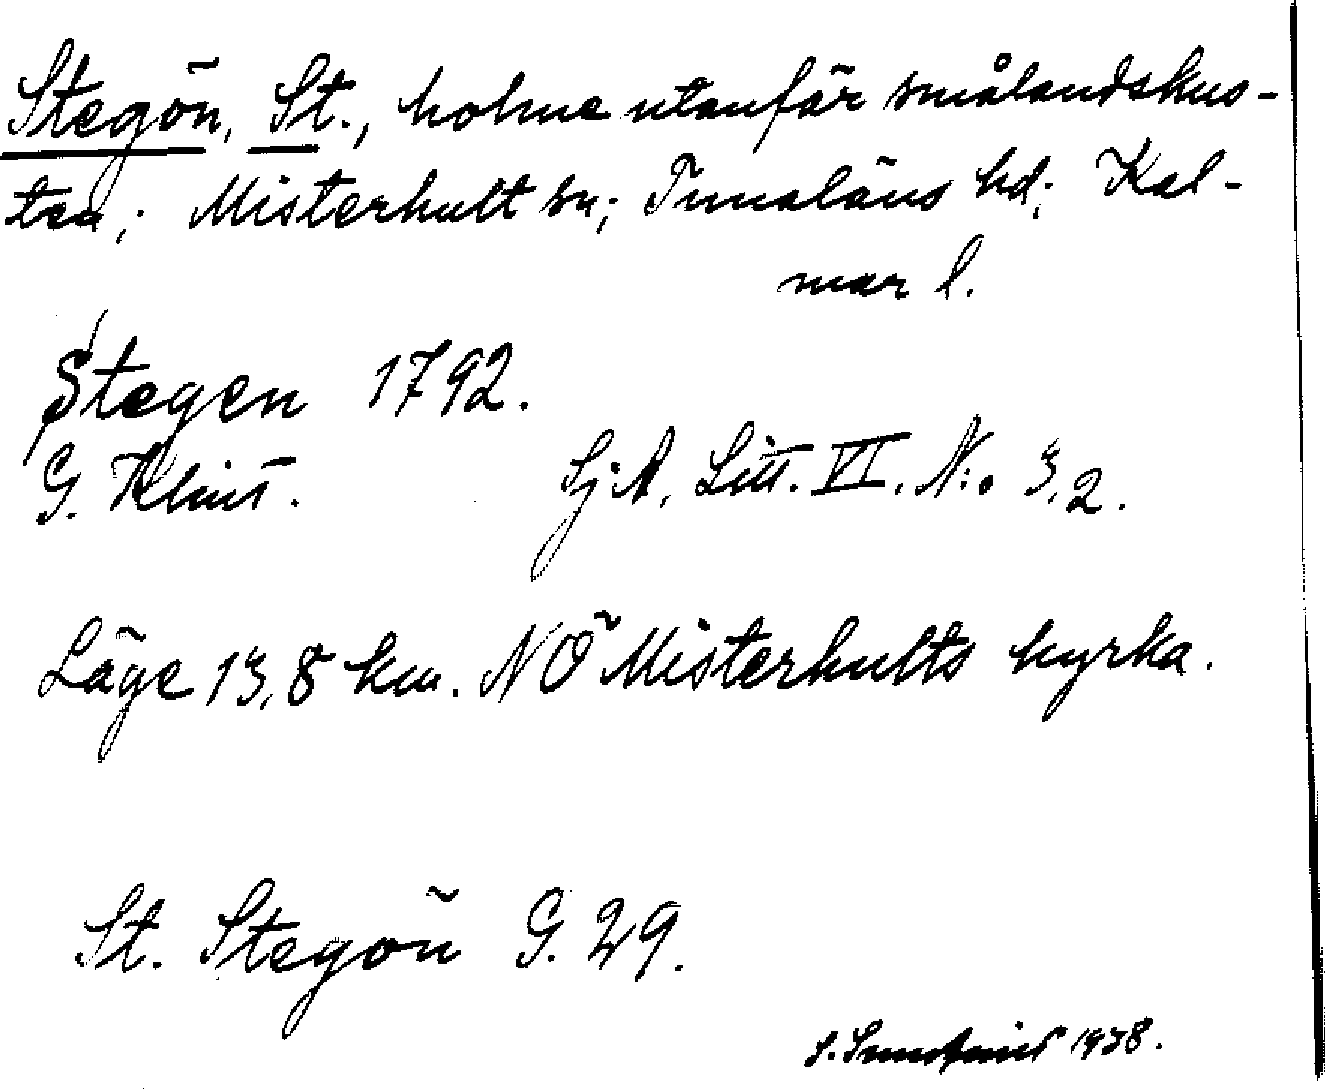 Stegön, St., holme utanför smålandskus-
ten; Misterhult sn; Tunaläns hd; Kal-
mar l.
Stegen 1792.
G. Klint. Sj:A, Litt. VI. N:o 3,2.
Läge 13,8 km. NÖ Misterhults kyrka.
St. Stegön G. 29.
S. 1938.